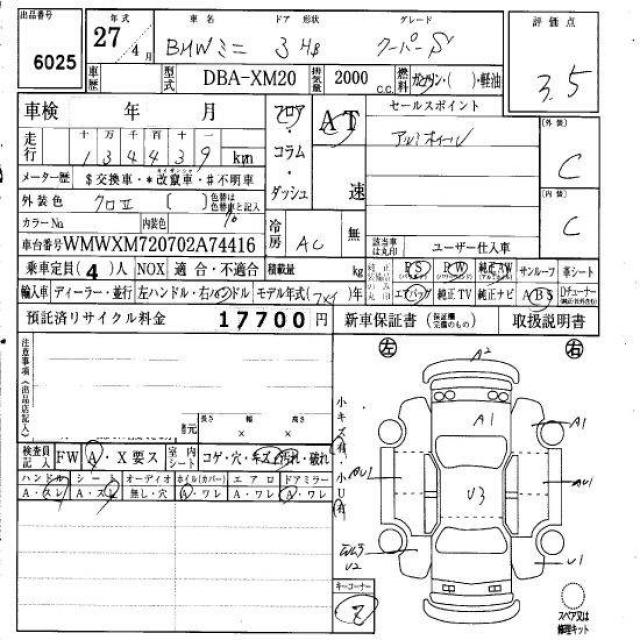 出品番号 6025
年式 27年 4月
車名 BMWミニ
ドア 形状 3 HB
グレード クーパーS
評価点 3.5
車歴
型式 DBA-XM20
排気量 2000 c.c.
燃料 ガソリン・( )・軽油
車検 年 月
フロア・コラム・ダッシュ
AT 速
セールスポイント
アルミホイール
(外装) C
(内装) C
走行 十 万 千 百 十 一
134439 km
メーター歴 $交換車・*改竄車・#不明車
外装色 クロⅡ ( ) 色替は色替車と記入
カラーNo. 内装色
冷房 AC 無
該当車は丸印 ユーザー仕入車
車台番号 WMWXM720702A74416
乗車定員(4)人 NOX 適合・不適合 積載量 kg
純正 PS PW 純正AW サンルーフ 革シート
輸入車 ディーラー・並行 左ハンドル・右ハンドル モデル年式( )年
エアバッグ 純正TV 純正ナビ ABS Dチューナー
預託済リサイクル料金 17700円 新車保証書(保証欄完備のもの) 取扱説明書
注意事項(出品店記入)
左 右
A2
A1
A1
AU1
U3
AU1
U2
U1
長さ 幅 高さ
× ×
小キズ有・小U有
検査員記入 FW A・X要ス 室内シート コゲ・穴・キズ・汚れ・破れ
ハンドル シート オーディオ ホイル(カバー) エアロ ドアミラー
A・スレ A・スレ 無し・穴 A・ワレ A・ワレ A・ワレ
キーコーナー
2
スペア又は修理キット